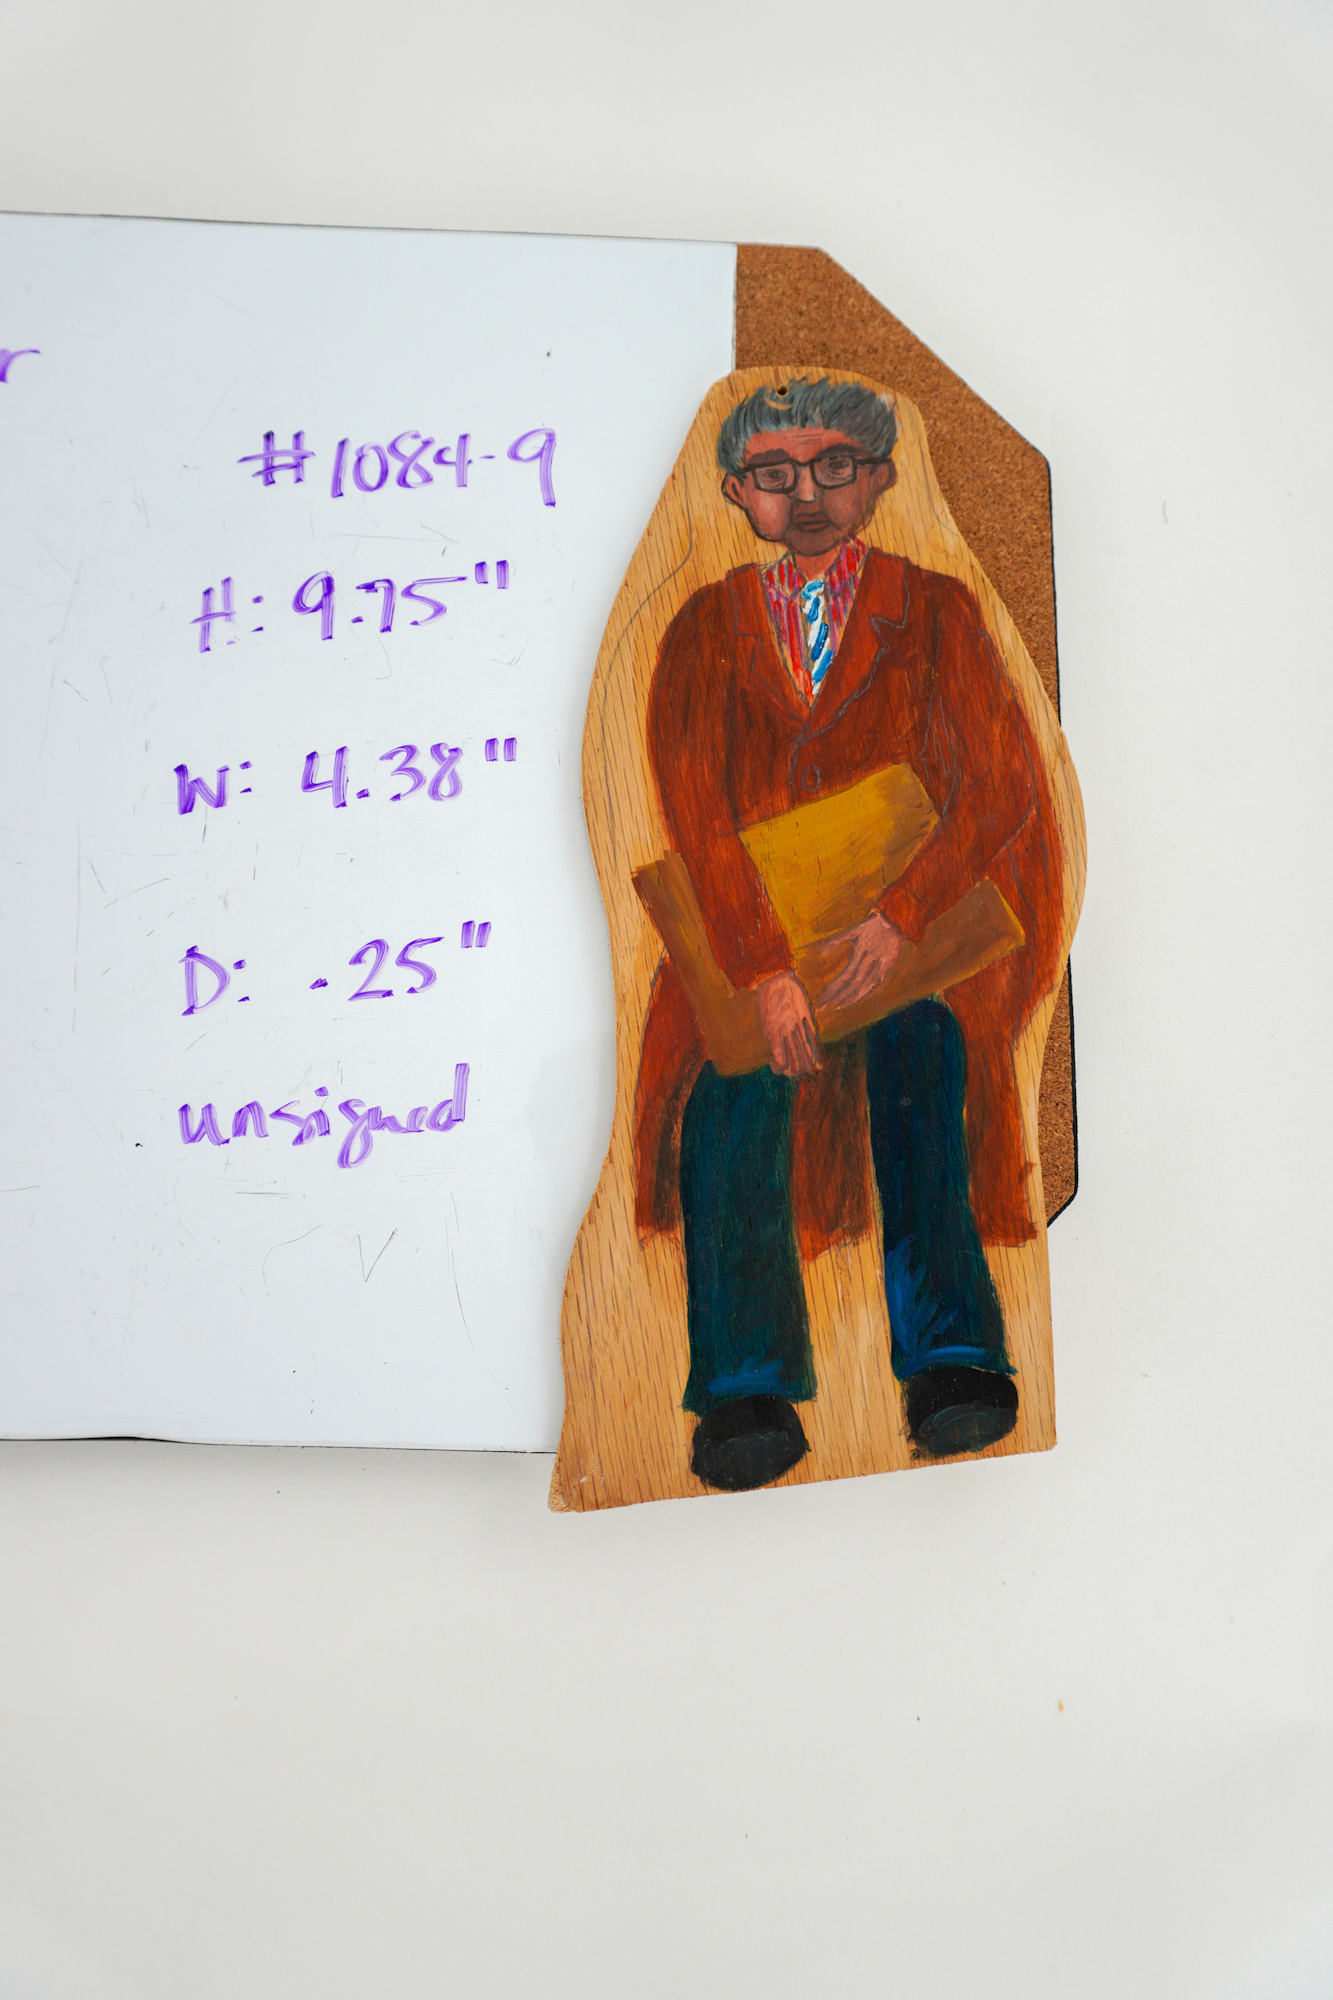 r
#1084-9
H: 9.75"
W: 4.38"
D: .25"
unsigned